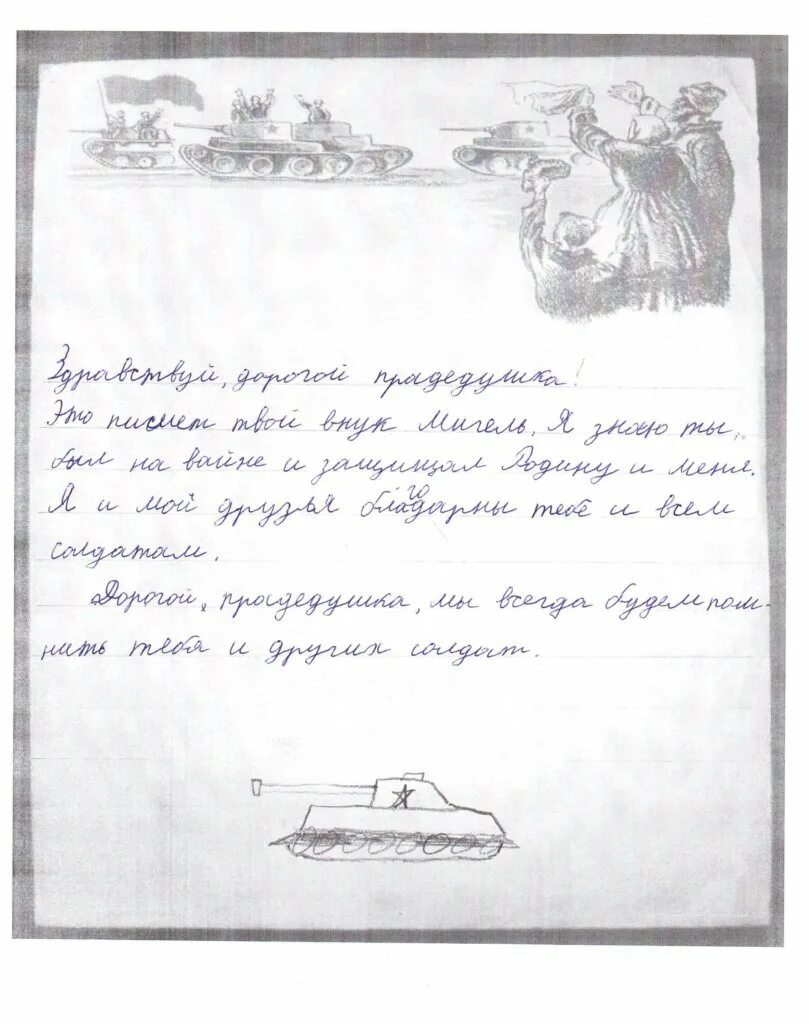 Здравствуй, дорогой прадедушка!
Это пишет твой внук Мигель. Я знаю ты,
был на вайне и защищал Родину и меня.
Я и мой друзья благодарны тебе и всем
солдатам.
Дорогой, прадедушка, мы всегда будем пом-
нить тебя и других солдат.